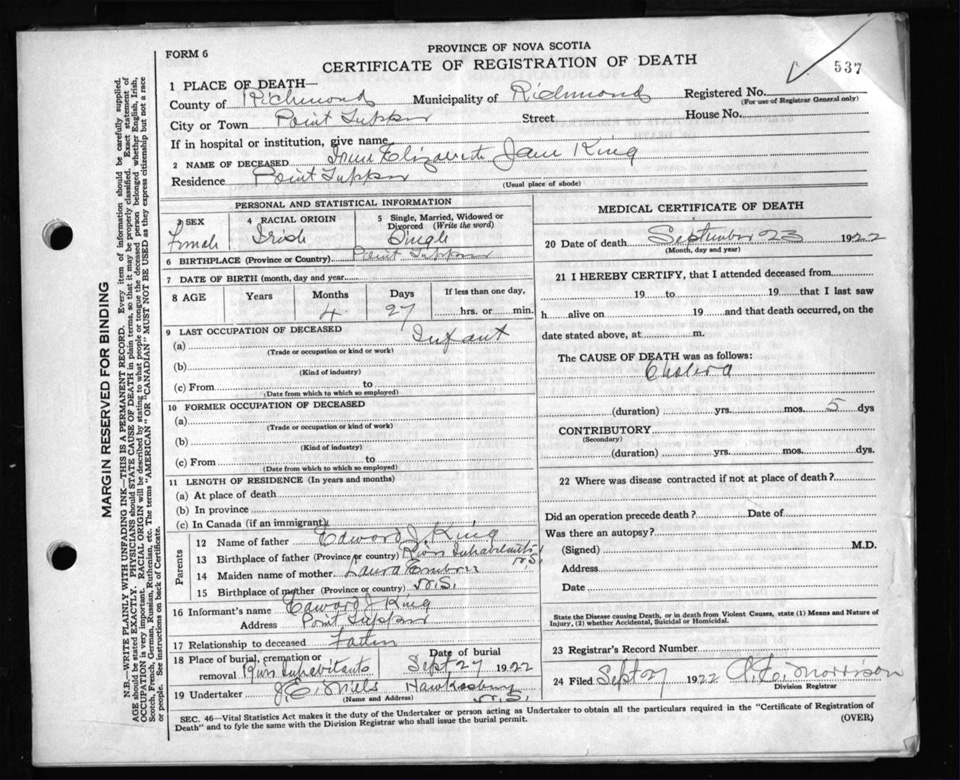 FORM 6
PROVINCE OF NOVA SCOTIA
CERTIFICATE OF REGISTRATION OF DEATH
537
1 PLACE OF DEATH—
County of Richmond Municipality of Richmond Registered No.
(For use of Registrar General only)
City or Town Point Tupper Street House No.
If in hospital or institution, give name
2 NAME OF DECEASED Irene Elizabeth Jane King
Residence Point Tupper
(Usual place of abode)
PERSONAL AND STATISTICAL INFORMATION
3 SEX Female
4 RACIAL ORIGIN Irish
5 Single, Married, Widowed or Divorced (Write the word) Single
6 BIRTHPLACE (Province or Country) Point Tupper
7 DATE OF BIRTH (month, day and year)
8 AGE Years Months Days If less than one day,
4 27 hrs. or min.
9 LAST OCCUPATION OF DECEASED
(a) Infant
(Trade or occupation or kind or work)
(b)
(Kind of industry)
(c) From to
(Date from which to which so employed)
10 FORMER OCCUPATION OF DECEASED
(a)
(Trade or occupation or kind of work)
(b)
(Kind of industry)
(c) From to
(Date from which to which so employed)
11 LENGTH OF RESIDENCE (In years and months)
(a) At place of death
(b) In province
(c) In Canada (if an immigrant)
Parents
12 Name of father Edward J. King
13 Birthplace of father (Province or country) River Inhabitants N.S.
14 Maiden name of mother Laura Embree
15 Birthplace of mother (Province or country) N.S.
16 Informant's name Edward J King
Address Point Tupper
17 Relationship to deceased Father
18 Place of burial, cremation or removal River Inhabitants Date of burial Sept 27 1922
19 Undertaker J. C. Mills Hawkesbury N.S.
(Name and Address)
MEDICAL CERTIFICATE OF DEATH
20 Date of death September 23 1922
(Month, day and year)
21 I HEREBY CERTIFY, that I attended deceased from
19 to 19 that I last saw
h alive on 19 and that death occurred, on the
date stated above, at m.
The CAUSE OF DEATH was as follows:
Cholera
(duration) yrs. mos. 5 dys
CONTRIBUTORY
(Secondary)
(duration) yrs. mos. dys.
22 Where was disease contracted if not at place of death?
Did an operation precede death? Date of
Was there an autopsy?
(Signed) M.D.
Address
Date
State the Disease causing Death, or in death from Violent Causes, state (1) Means and Nature of
Injury, (2) whether Accidental, Suicidal or Homicidal.
23 Registrar's Record Number
24 Filed Sept 27 1922 Morrison
Division Registrar
SEC. 46—Vital Statistics Act makes it the duty of the Undertaker or person acting as Undertaker to obtain all the particulars required in the "Certificate of Registration of
Death" and to fyle the same with the Division Registrar who shall issue the burial permit.
(OVER)
MARGIN RESERVED FOR BINDING
N.B.—WRITE PLAINLY WITH UNFADING INK—THIS IS A PERMANENT RECORD. Every item of information should be carefully supplied.
AGE should be stated EXACTLY. PHYSICIANS should STATE CAUSE OF DEATH in plain terms, so that it may be properly classified. Exact statement of
OCCUPATION is very important. RACIAL ORIGIN will be described by stating to what people or tongue the deceased person belonged whether English, Irish,
Scotch, French, German, Russian, Ruthenian, etc. The terms "AMERICAN" OR "CANADIAN" MUST NOT BE USED as they express citizenship but not a race
or people. See instructions on back of Certificate.